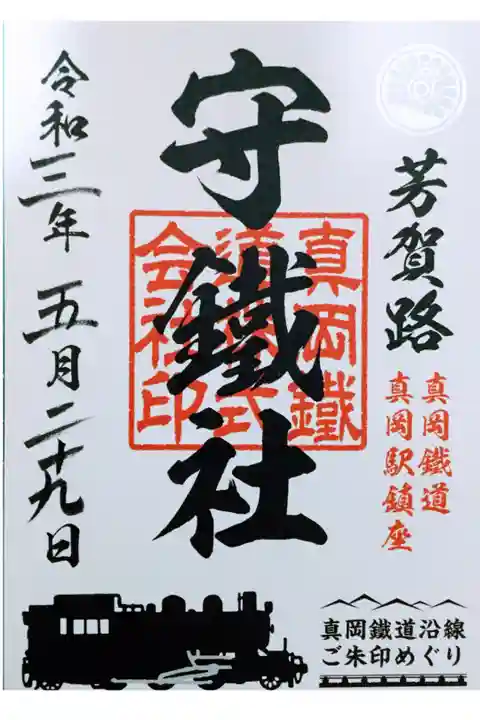 芳賀路
真岡鐵道
真岡駅鎮座
守鐵社
真岡鐵
道株式
会社印
令和三年五月二十九日
真岡鐵道沿線
ご朱印めぐり